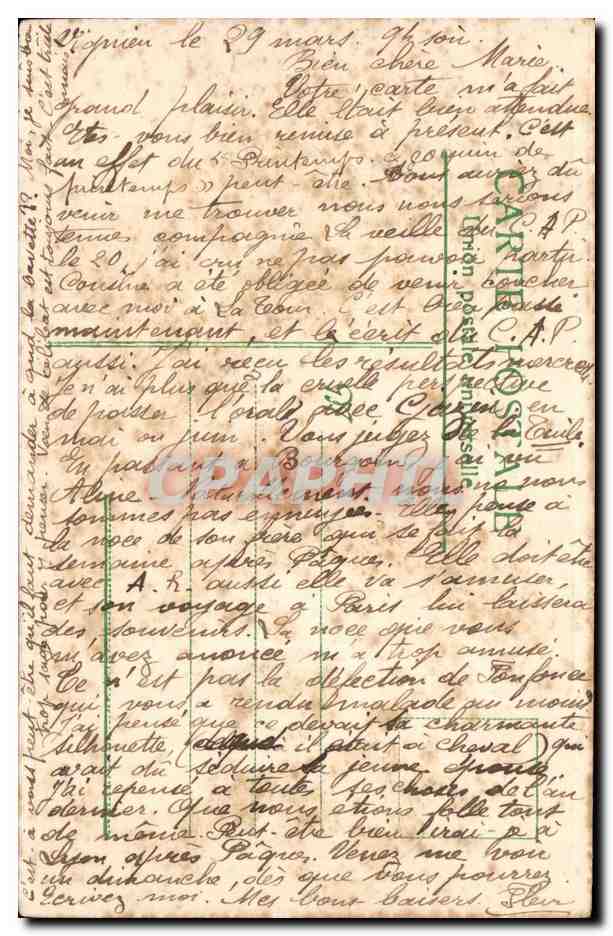 Vignieu le 29 mars. 9h soir.
Bien chère Marie
Votre carte m'a fait
grand plaisir. Elle était bien attendue
Etes-vous bien remise à présent. C'est
un effet du "Printemps, coquin de
printemps" peut-être. aviez dû
venir me trouver nous nous serions
tenues compagnie la veille du C.A.P.
le 20 j'ai cru ne pas pouvoir partir.
a été obligée de venir coucher
avec moi à La Tour. C'est bien passé
maintenant, et l'écrit du C.A.P
aussi. J'ai reçu les résultats mercredi
Je n'ai plus que la cruelle perspective
de passer l'oral avec en
mai ou juin. Vous jugez de la Tuile.
En passant à Bourgoin j'ai vu
Aline naturellement, nous ne nous
sommes pas ennuyées. Elle pense à
la noce de son frère qui se fait la
semaine après Pâques. Elle doit être
avec A. R. aussi elle va s'amuser,
et son voyage à Paris lui laissera
des souvenirs. La noce que vous
m'avez anoncé m'a trop amusé.
Ce n'est pas la défection de Fonfonce
qui vous a rendu malade au moins
J'ai pensé que ce devait sa charmante
silhouette, (quand il était à cheval) qui
avait dû séduire la jeune épouse
J'ai repensé à toutes ses choses de l'an
dernier. Que nous étions folle tout
de même. Peut-être bien irai-je à
Lyon après Pâques. Venez me voir
un dimanche, dès que vous pourrez.
Ecrivez moi. Mes bons baisers. Fleur
C'est à vous peut-être qu'il faut demander à quand la bavette?? Moi, je suis bien
trop sage pour y penser. Le célibat est toujours fait. C'est triste
CARTE POSTALE
Union Postale Universelle
CPAPHIL